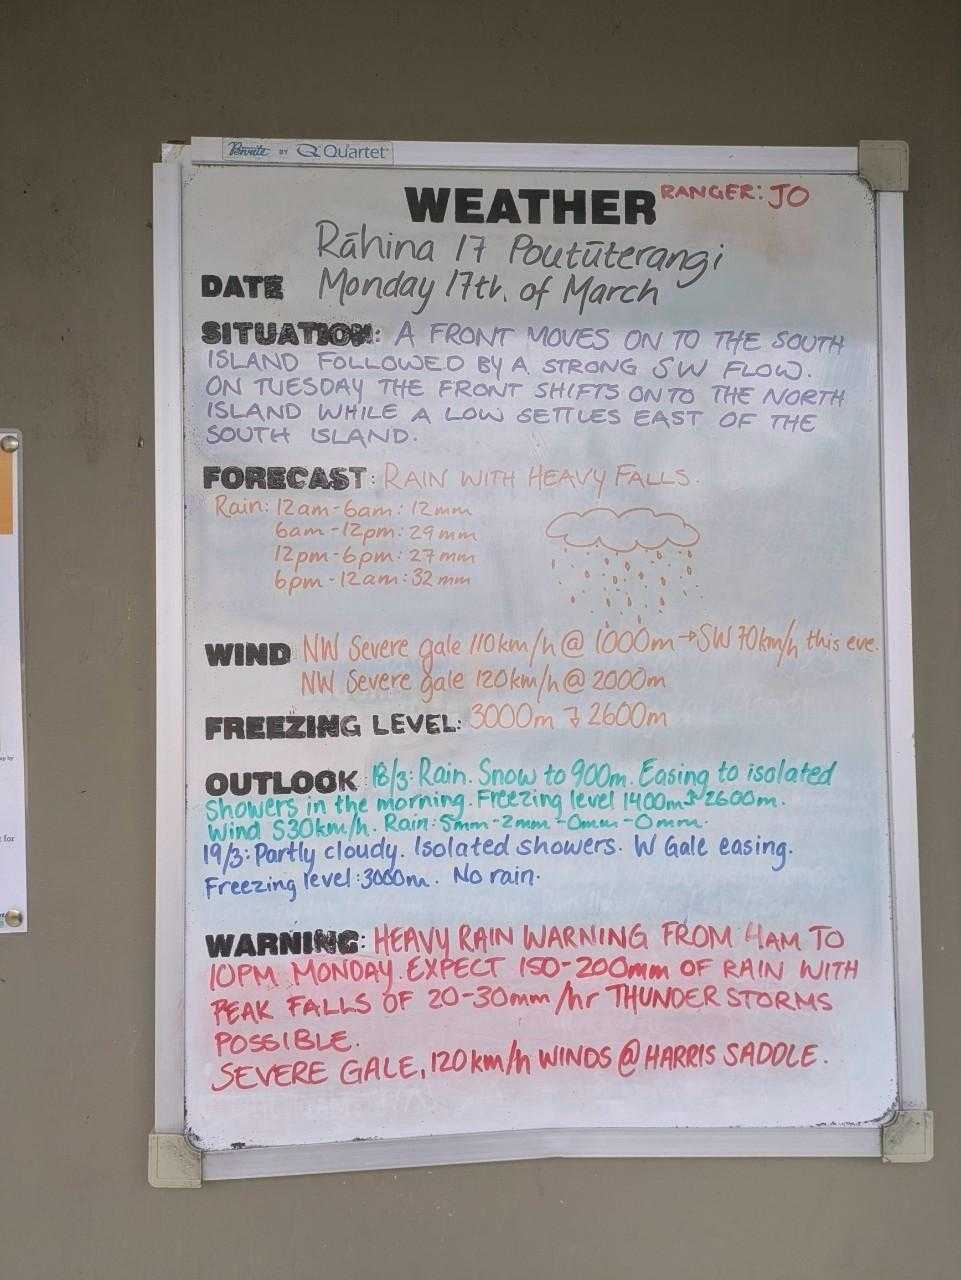 Penrite BY Quartet
WEATHER RANGER: JO
Rāhina 17 Poutūterangi
DATE Monday 17th. of March
SITUATION: A FRONT MOVES ON TO THE SOUTH
ISLAND FOLLOWED BY A STRONG SW FLOW.
ON TUESDAY THE FRONT SHIFTS ONTO THE NORTH
ISLAND WHILE A LOW SETTLES EAST OF THE
SOUTH ISLAND.
FORECAST: RAIN WITH HEAVY FALLS.
Rain: 12am-6am: 12mm
6am-12pm: 29mm
12pm-6pm: 27mm
6pm-12am: 32mm
WIND NW Severe gale 110km/h @ 1000m → SW 70km/h this eve.
NW Severe gale 120km/h @ 2000m
FREEZING LEVEL: 3000m ↴ 2600m
OUTLOOK 18/3: Rain. Snow to 900m. Easing to isolated
showers in the morning. Freezing level 1400m↗2600m.
Wind S30km/h. Rain: 5mm-2mm-0mm-0mm.
19/3: Partly cloudy. Isolated showers. W Gale easing.
Freezing level: 3000m. No rain.
WARNING: HEAVY RAIN WARNING FROM 4AM TO
10PM MONDAY. EXPECT 150-200mm OF RAIN WITH
PEAK FALLS OF 20-30mm/hr THUNDERSTORMS
POSSIBLE.
SEVERE GALE, 120km/h WINDS @ HARRIS SADDLE.
for